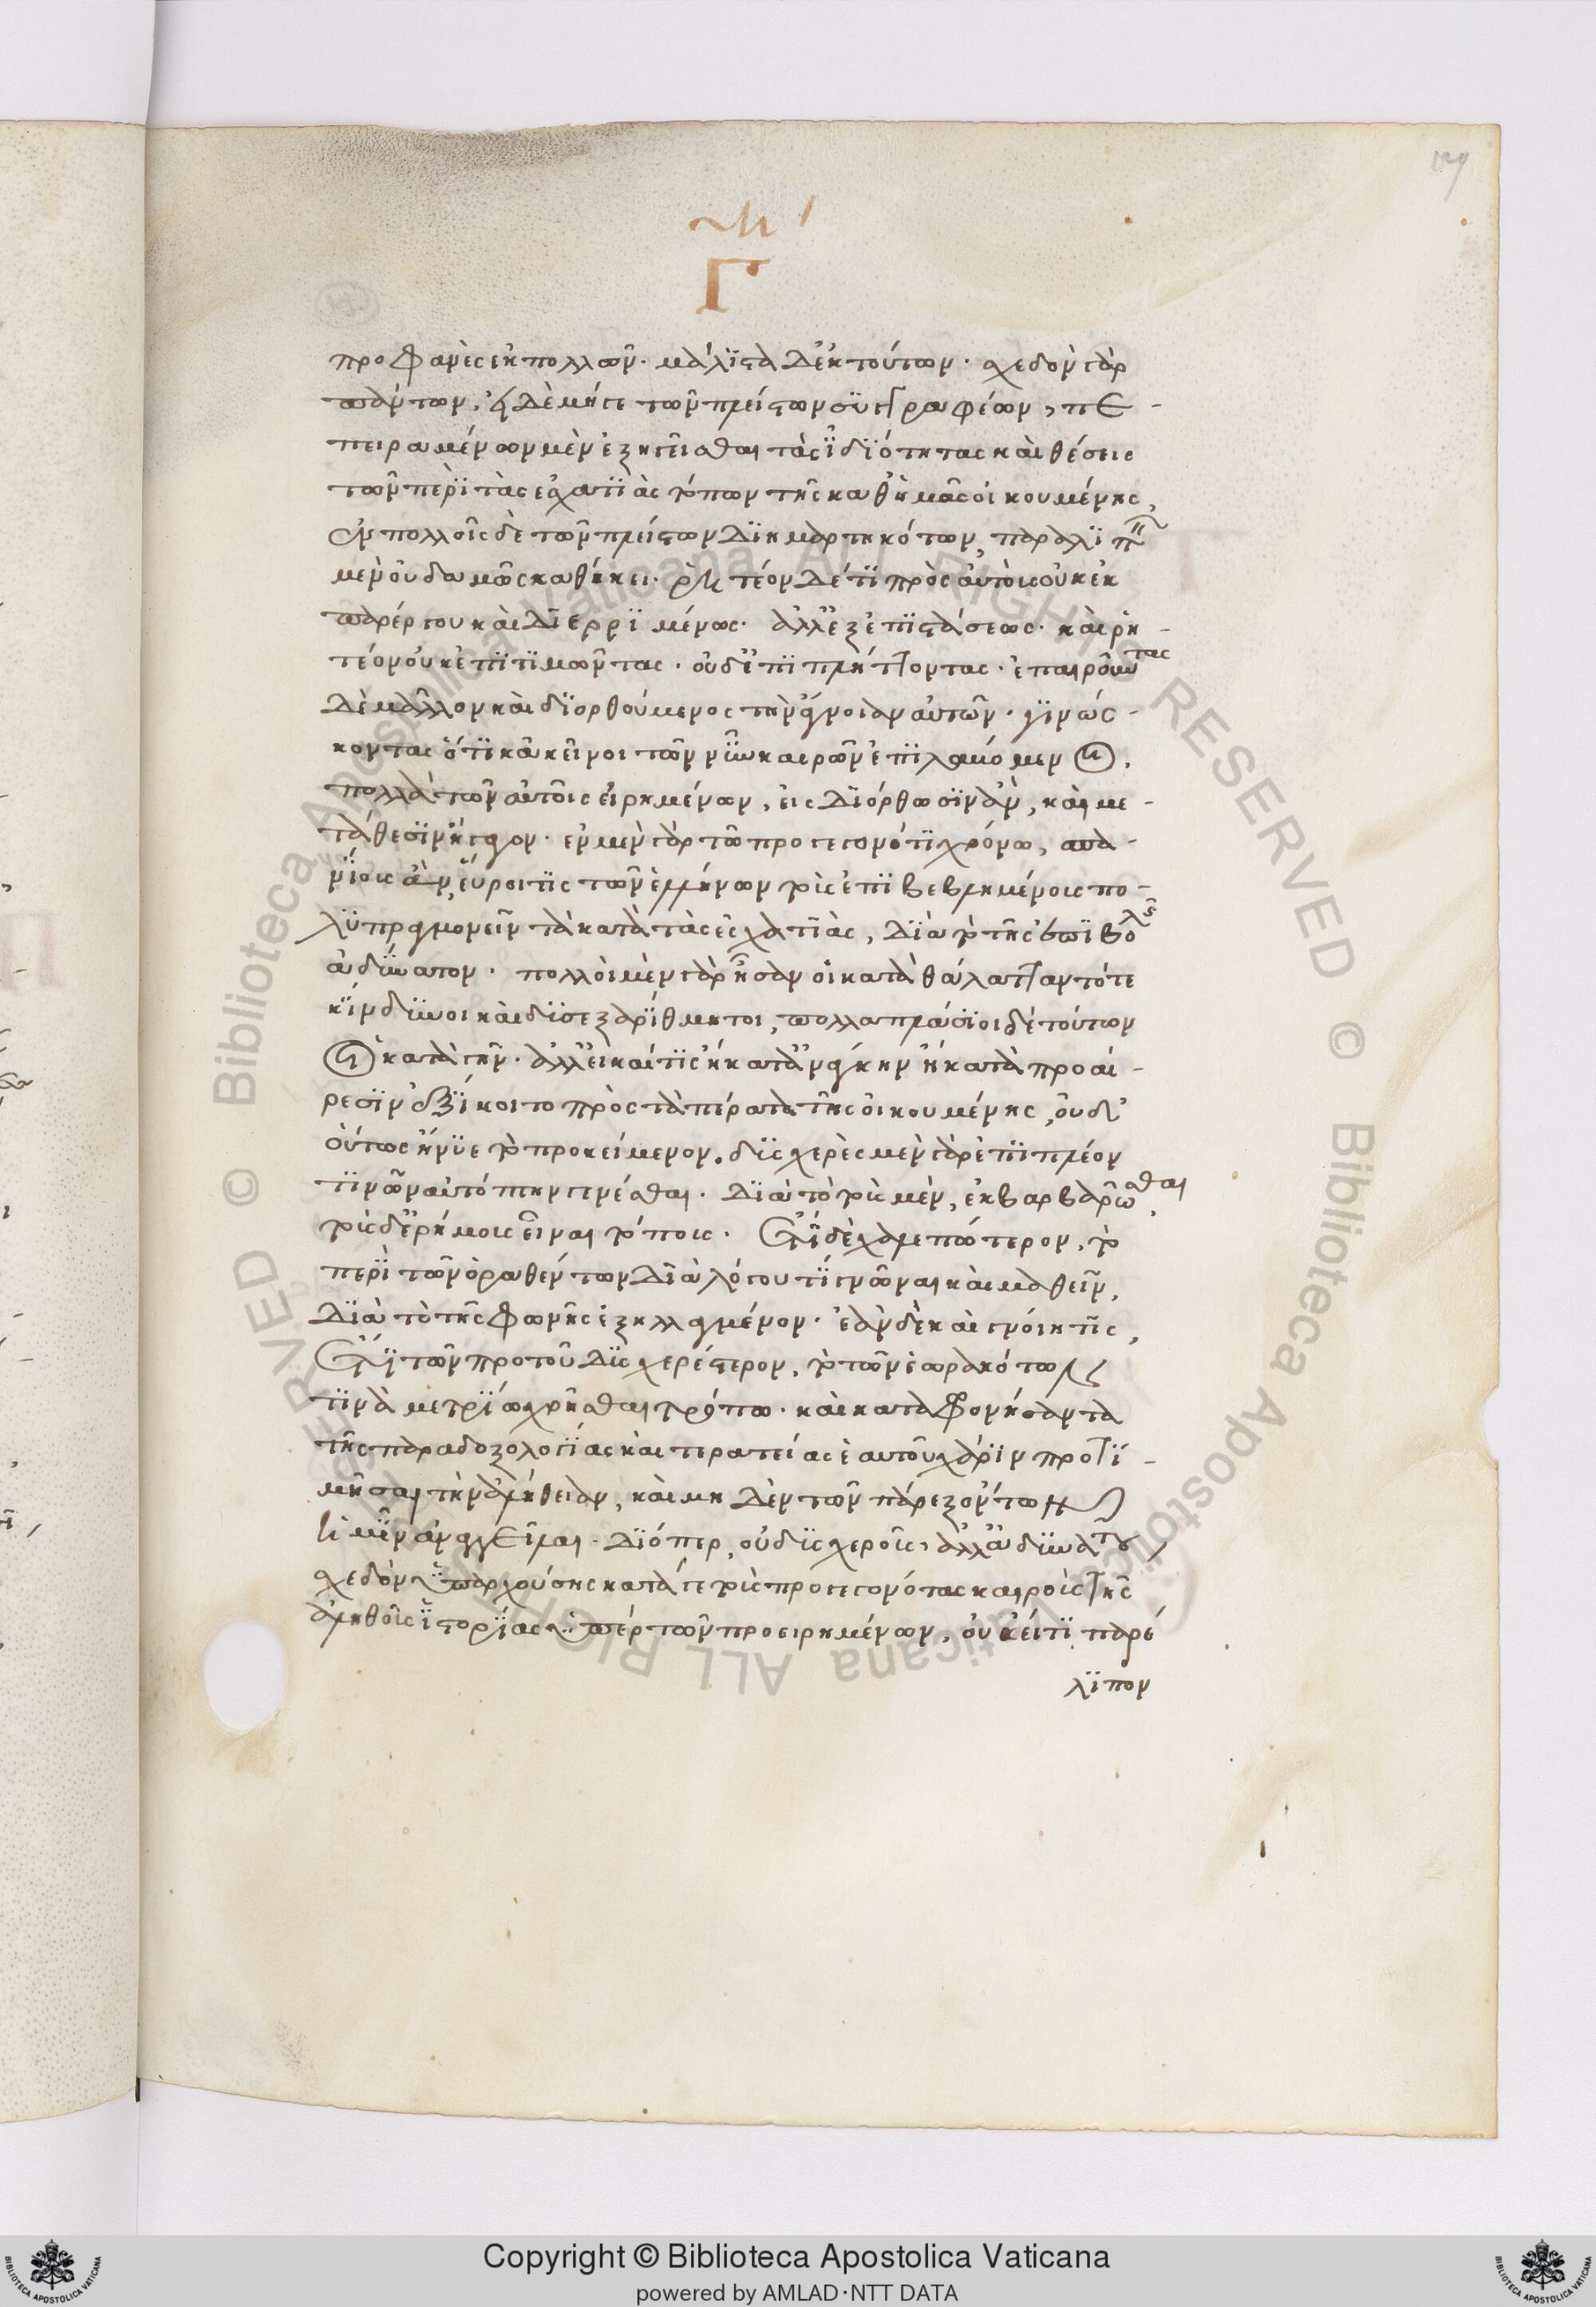 νη
Γ
προφανὲς ἐκ πολλῶν. μάλιστα δ' ἐκ τούτων. σχεδὸν γὰρ
πάντων, εἰ δὲ μή γε τῶν πλείστων συγγραφέων, πε-
πειραμένων μὲν ἐξηγεῖσθαι τὰς ἰδιότητας καὶ θέσεις
τῶν περὶ τὰς ἐσχατιὰς τόπων τῆς καθ' ἡμᾶς οἰκουμένης,
ἐν πολλοῖς δὲ τῶν πλείστων διημαρτηκότων, παραλιπεῖν
μὲν οὐδαμῶς καθήκει. ῥητέον δέ τι πρὸς αὐτοὺς οὐκ ἐκ
παρέργου καὶ διερριμένως. ἀλλ' ἐξ ἐπιστάσεως. καὶ ῥη-
τέον οὐκ ἐπιτιμῶντας. οὐδ' ἐπιπλήττοντας. ἐπαιροῦντας
δὲ μᾶλλον καὶ διορθούμενος τὴν ἄγνοιαν αὐτῶν. γινώσ-
κοντας ὅτι κἀκεῖνοι τῶν νῦν καιρῶν ἐπιλαβόμενοι,
πολλὰ τῶν αὐτοῖς εἰρημένων, εἰς διόρθωσιν ἂν, καὶ με-
τάθεσιν ἤγαγον. ἐν μὲν γὰρ τῶ προγεγονότι χρόνω, σπα-
νίους ἂν, εὕροι τις τῶν ἑλλήνων τοὺς ἐπιβεβλημένους πο-
λυπραγμονεῖν τὰ κατὰ τὰς ἐσχατιὰς, διὰ τὸ τῆς ἐπιβολῆς
ἀδύνατον. πολλοὶ μὲν γὰρ ἦσαν οἱ κατὰ θάλατταν τότε
κίνδυνοι καὶ δυσεξαρίθμητοι, πολλαπλάσιοι δὲ τούτων
οἱ κατὰ γῆν. ἀλλ' εἰ καί τις ἢ κατ' ἀνάγκην ἢ κατὰ προαί-
ρεσιν ἐξίκοιτο πρὸς τὰ πέρατα τῆς οἰκουμένης, οὐδ'
οὕτως ἤνυε τὸ προκείμενον. δυσχερὲς μὲν γὰρ ἐπὶ πλέον
τινῶν αὐτόπτην γενέσθαι. διὰ τὸ τοὺς μὲν, ἐκβαρβαρῶσθαι,
τοὺς δ' ἐρήμους εἶναι τόπους. ἔτι δὲ χαλεπώτερον, τὸ
περὶ τῶν ὁραθέντων διὰ λόγου τι γνῶναι καὶ μαθεῖν,
διὰ τὸ τῆς φωνῆς ἐξηλλαγμένον. ἐὰν δὲ καὶ γνοίη τις,
ἔτι τῶν προτοῦ δυσχερέστερον, τὸ τῶν ἑωρακότων
τινὰ μετρίω χρῆσθαι τρόπω. καὶ καταφρονήσαντα
τῆς παραδοξολογίας καὶ τερατείας ἑαυτοῦ χάριν προτι-
μῆσαι τὴν ἀλήθειαν, καὶ μηδὲν τῶν πάρεξ ὄντων
ἡμῖν ἀναγγεῖλαι. διόπερ, οὐ δυσχεροῦς, ἀλλ' ἀδυνάτου
σχεδὸν ὑπαρχούσης κατά γε τοὺς προγεγονότας καιροὺς τῆς
ἀληθοῦς ἱστορίας ὑπὲρ τῶν προειρημένων, οὐκ εἴ τι παρέ
λιπον
Copyright © Biblioteca Apostolica Vaticana
powered by AMLAD·NTT DATA